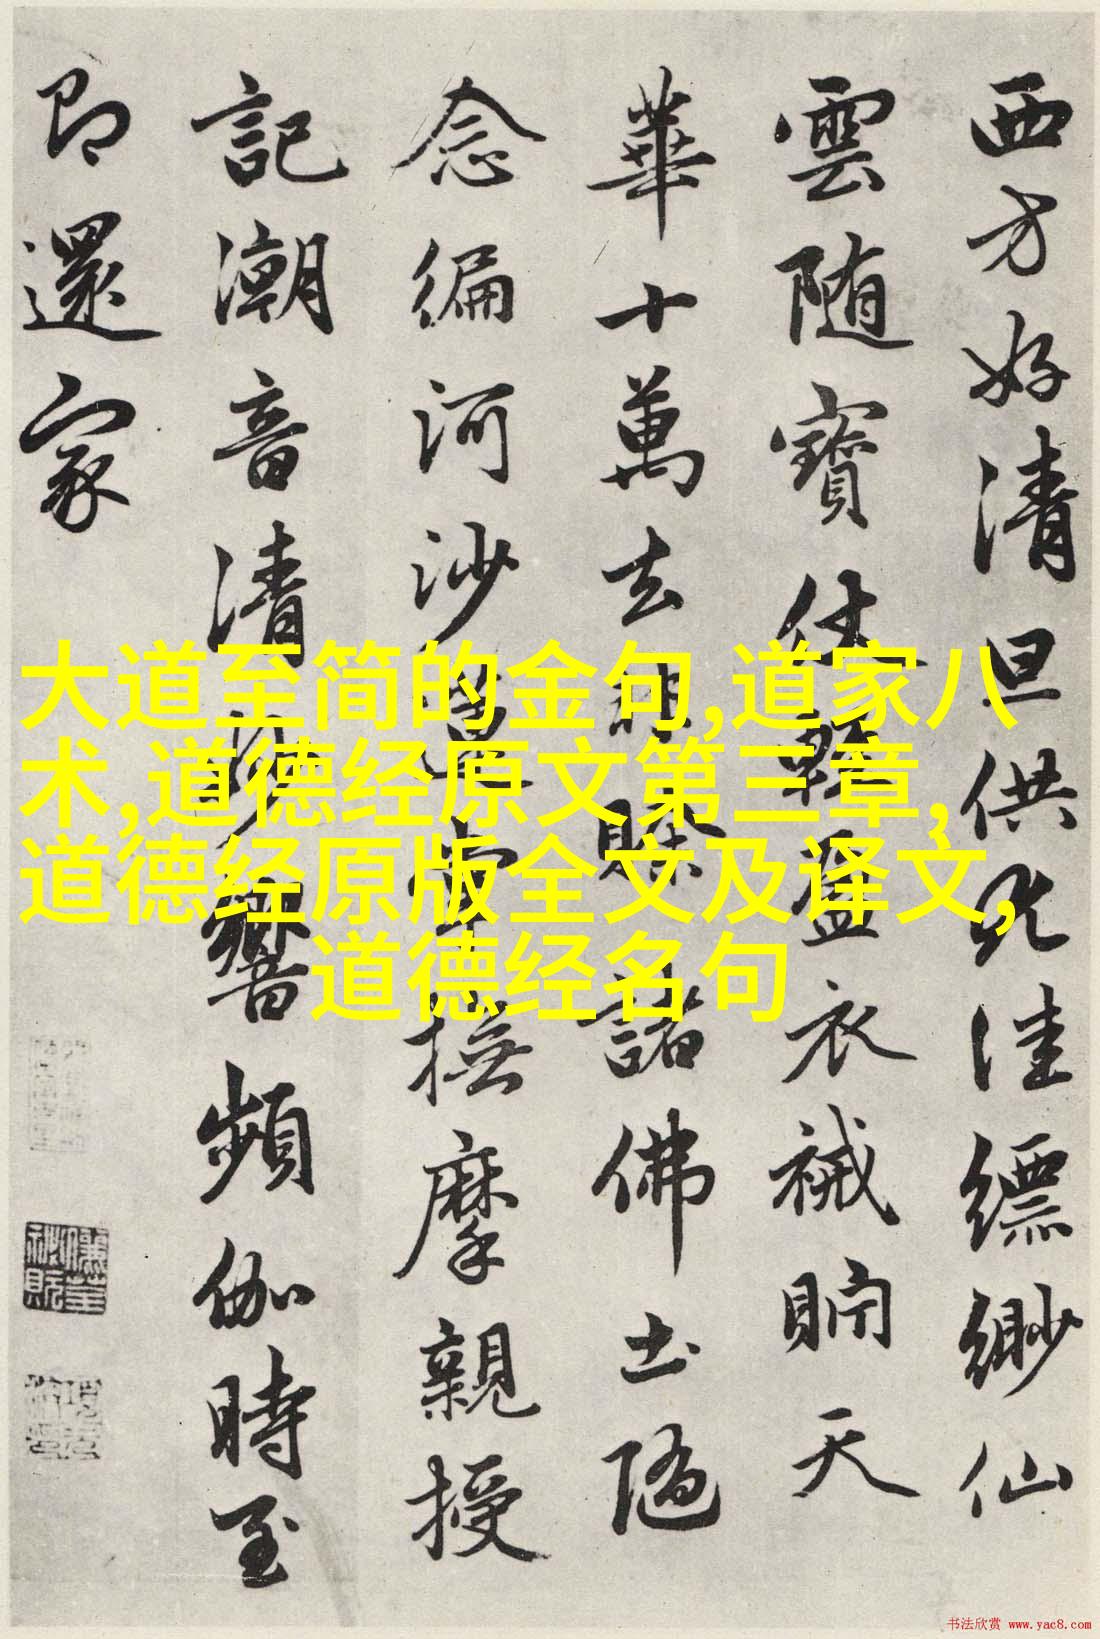 西方好清旦供尤佳縹緲仙
雲随寶仗輕盈衣裓貯天
華十萬去非賒諸佛土隨
念徧河沙蓮掌撫摩親授
記潮音清妙響頻伽時至
即還家
大道至简的金句,道家八
术,道德经原文第三章,
道德经原版全文及译文,
道德经名句
书法欣赏 www.yac8.com